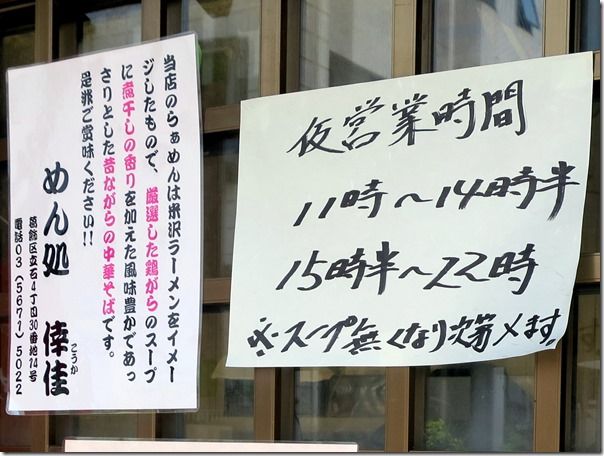 当店のらぁめんは米沢ラーメンをイメー
ジしたもので、厳選した鶏がらのスープ
に煮干しの香りを加えた風味豊かであっ
さりとした昔ながらの中華そばです。
是非ご賞味ください!!
めん処 倖佳
こうか
葛飾区立石4丁目30番地14号
電話03(5671)5022
仮営業時間
11時〜14時半
15時半〜22時
※スープ無くなり次第〆ます。